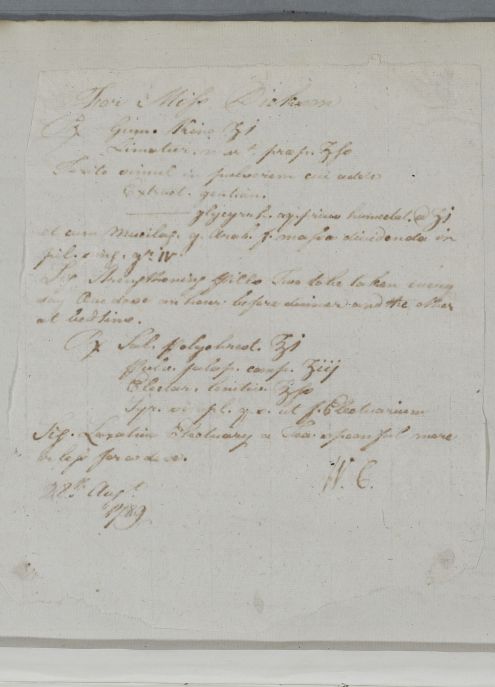 For Miss Dickson
℞ Gum. Kino ʒi
Limatur. mart. prap. ʒſs
Terito simul in pulverem cui adde
Extract. gentian.
——— glycyrrh. aq. prius humectat. a ʒi
et cum Mucilag. g. Arab. f. massa dividenda in
pil. sing. gr. IV.
Sig. Strengthening Pills Two to be taken every
day One dose an hour before dinner and the other
at bedtime.
℞ Sal. polychrest. ʒi
Pulv. jalap. comp. ʒiij
Electar. lenitiv. ℥ſs
Syr. simpl. q.s. ut f. Electuarium
Sig. Laxative Electuary a Tea spoonful more
or less for a dose.
W. C.
28th Augt.
1789